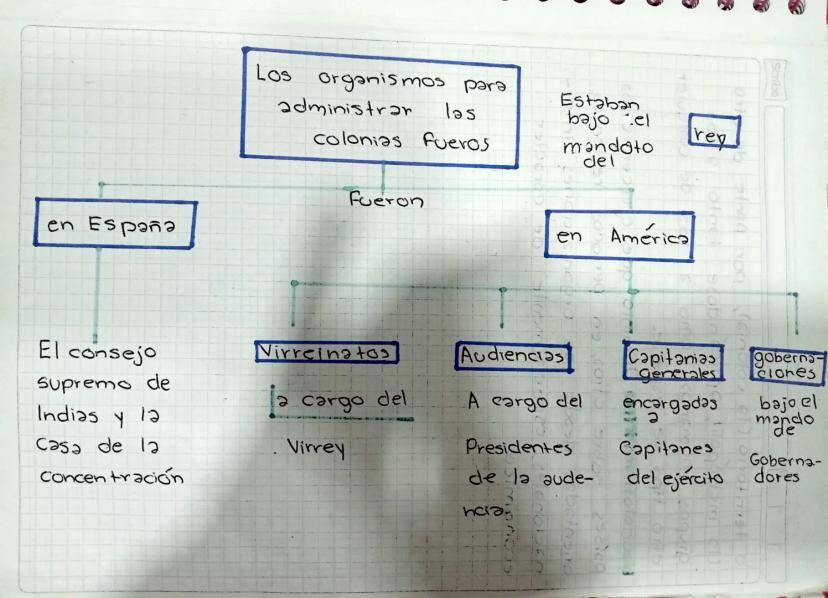 Los organismos para
administrar las
colonias fueros
Estaban
bajo el
mandato
del
rey
Fueron
en España
en América
El consejo
supremo de
Indias y la
Casa de la
concentración
Virreinatos
a cargo del
Virrey
Audiencias
A cargo del
Presidentes
de la aude-
ncia
Capitanias
generales
encargadas
a
Capitanes
del ejército
goberna-
ciones
bajo el
mando
de
Goberna-
dores